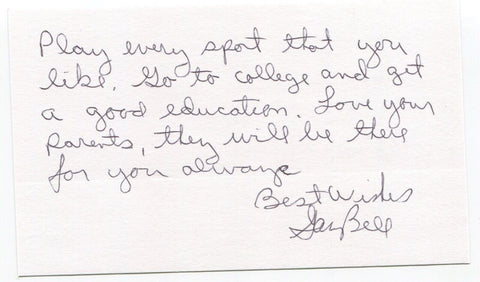 Play every sport that you
like. Go to college and get
a good education. Love your
Parents, they will be there
for you always
Best Wishes
Gary Bell